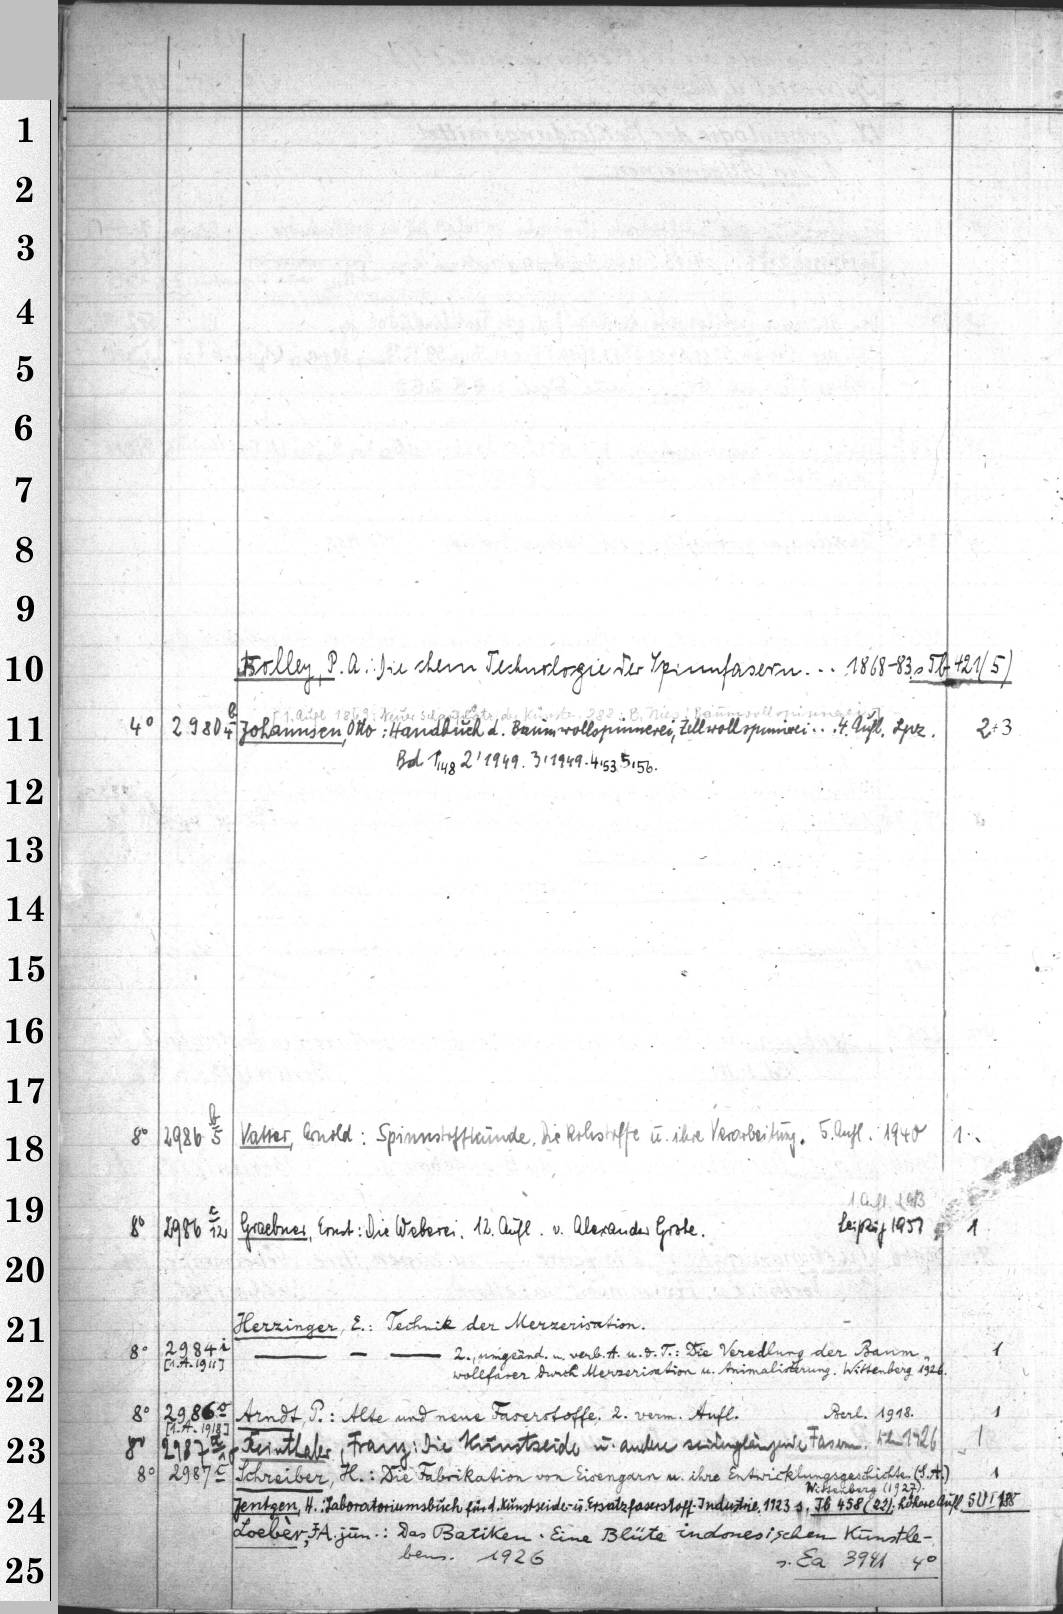 1
2
3
4
5
6
7
8
9
10
Bolley, P. A.: Die chem Technologie der Spinnfasern... 1868-83, s Tb 421(5)
[1. Aufl. 1902: Neuer Schauplatz der Künste 282: B. Nieß: Baumwollspinnerei]
11
4° 2980 b/4 Johannsen, Otto: Handbuch d. Baumwollspinnerei, Zellwollspinnerei... 4. Aufl. Lpz. 2+3
Bd 1,48 2'1949. 3'1949. 4,53 5,56.
12
13
14
15
16
17
18
8° 2986 b/5 Vatter, Arnold: Spinnstoffkunde. Die Rohstoffe u. ihre Verarbeitung. 5. Aufl. 1940 1.
1 Aufl. 1913
19
8° 2986 c/12 Graebner, Ernst: Die Weberei. 12. Aufl. v. Alexander Grote. Leipzig 1951 1
20
21
Herzinger, E.: Technik der Merzerisation.
8° 2984 i — — — 2., umgeänd. u. verb. A. u. d. T.: Die Veredlung der Baum- 1
[1. A. 1911] wollfaser durch Merzerisation u. Animalisierung. Wittenberg 1926.
22
8° 2986 o Arndt, P.: Alte und neue Faserstoffe. 2. verm. Aufl. Berl. 1918. 1
[1. A. 1918]
23
8° 2987 Reinthaler, Franz: Die Kunstseide u. andere seidenglänzende Fasern. 1926 1
8° 2987 c Schreiber, H.: Die Fabrikation von Eisengarn u. ihre Entwicklungsgeschichte. (S. A.) 1
Wittenberg (1927).
24
Jentgen, H.: Laboratoriumsbuch für d. Kunstseide- u. Ersatzfaserstoff-Industrie. 1923 s. Tb 458 (22);
Loebèr, J A jun.: Das Batiken. Eine Blüte indonesischen Kunstle-
bens. 1926 s. Ea 3941 4°
25